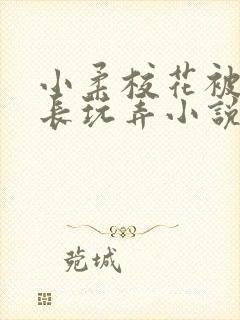 小柔校花被
长玩弄小說
菀城